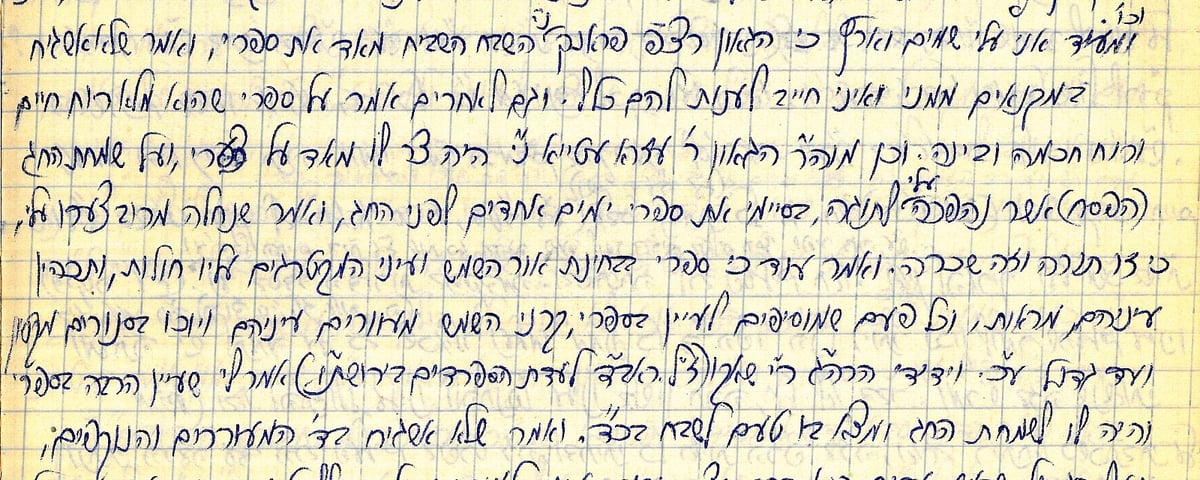 וכו'
ומעיד אני עלי שמים וארץ כי הגאון רצ"פ פראנק נ"י השבח השביח מאד את ספרי, ואמר שלא אשגיח
במקנאים ממני ואיני חייב לענות להם כלל. וגם לאחרים אמר על ספרי שהוא מלא רוח חיים
ורוח חכמה ובינה. וכן מוהר"ר הגאון ר' עזרא עטייא נ"י היה צר לו מאד על ספרי, ועל שמחת החג
(הפסח) אשר נהפכה עלי לתוגה, בסיימי את ספרי ימים אחדים לפני החג, ואמר שנחלה מרוב צערו עלי,
כי זו תורה וזה שכרה. ואמר עוד כי ספרי בבחינת אור השמש ועיני המקטרגים עליו חולות, ותכהין
עיניהם מראות, וכל פעם שמוסיפים לעיין בספרי, קרני השמש מעוורים עיניהם ויוכו בסנורים מקטון
ועד גדול ע"כ. וידידי הרה"ג ר"י שאקי (ז"ל. ראב"ד לעדת הספרדים בירושת"ו) אמר לי שעיין הרבה בספרי
והיה לו לשמחת החג ומצא בו טעם לשבח בכ"ד. ואמר שלא אשגיח בד' המעוררים והנוקפים,